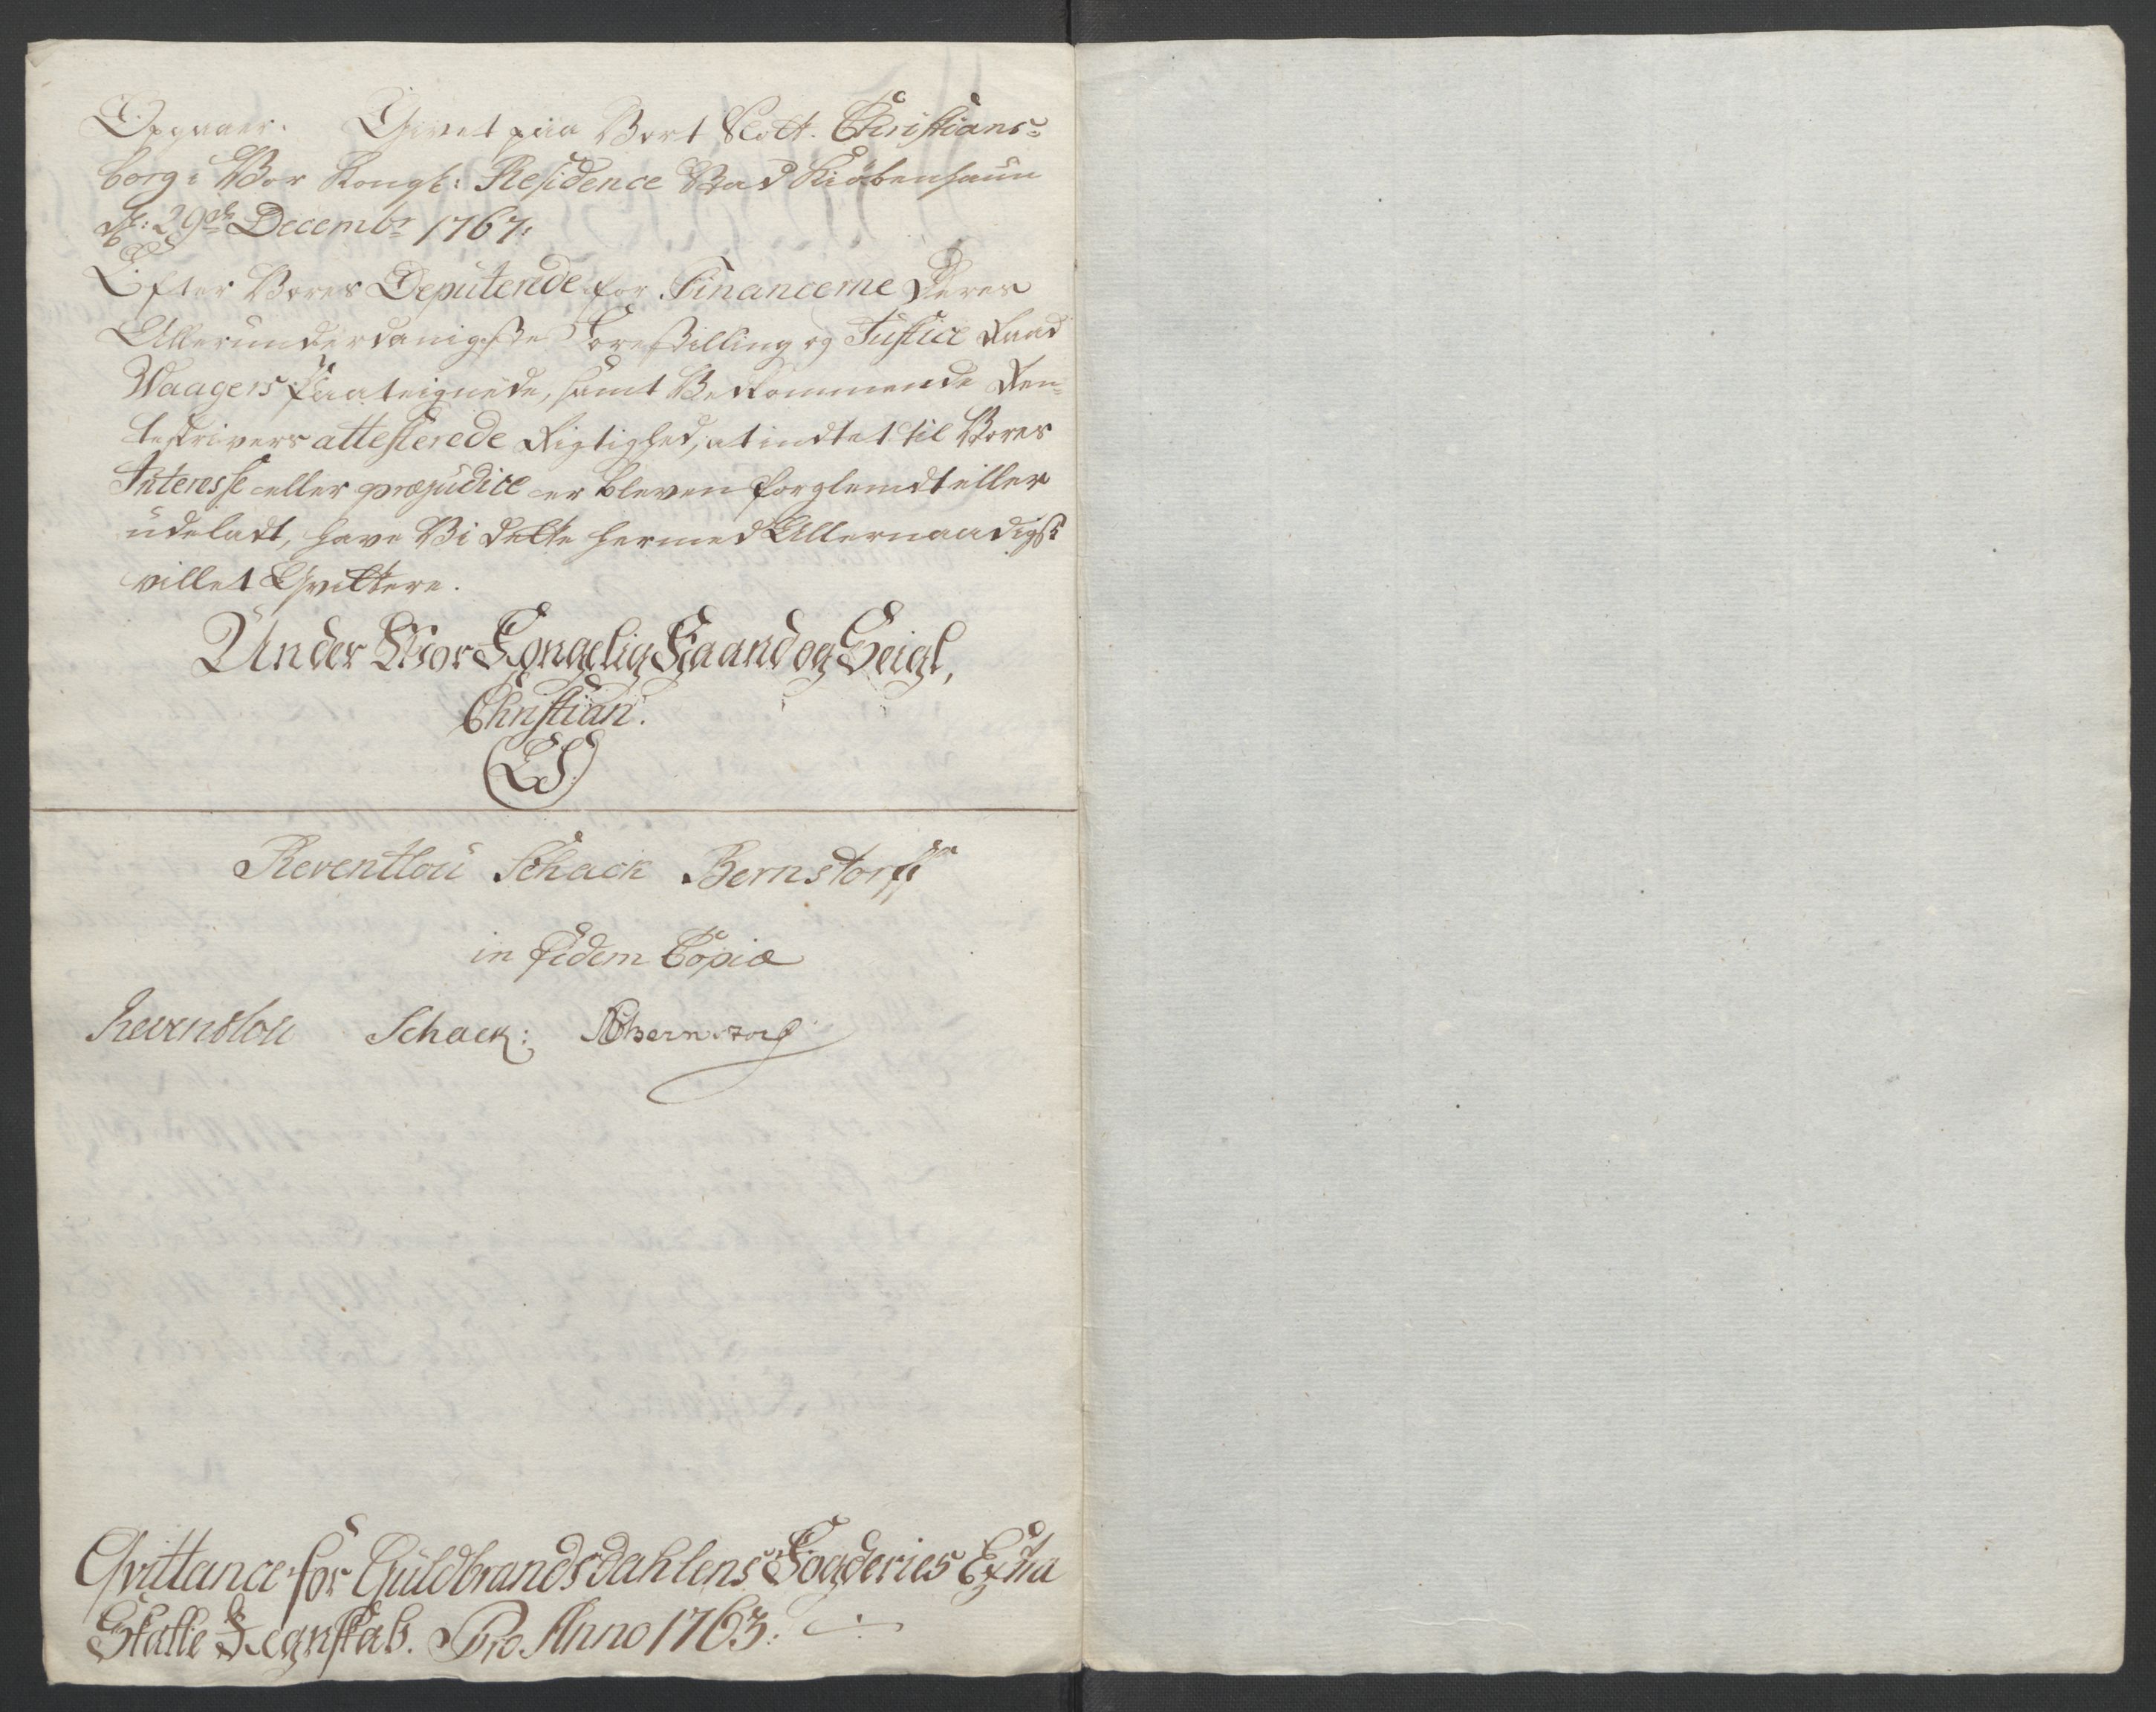 Givet paa Vort Slott Christians-
borg i Vor Kongl: Residence Stad Kiøbenhaun
d: 29de Decembr 1767.
Efter Vores Deputerede for Financerne Deres
Allerunderdanigste Forestilling og Justice Raad
Waagers Paateignede, samt Vedkommende Ren-
teskrivers attesterede Rigtighed, at indtet til Vores
Interesse eller præjudice er bleven forglemdt eller
udeladt, have Vi dette hermed Allernaadigst
villet Qvittere.
Under Vor Kongelig Haand og Seigl,
Christian.
(LS)
Reventlou Schack Bernstorff
in fidem Copiæ
Reventlou Schack: Bernstorff
Qvittance for Guldbrandsdahlens Fogderies Extra
Skatte Regnskab. Pro Anno 1763.